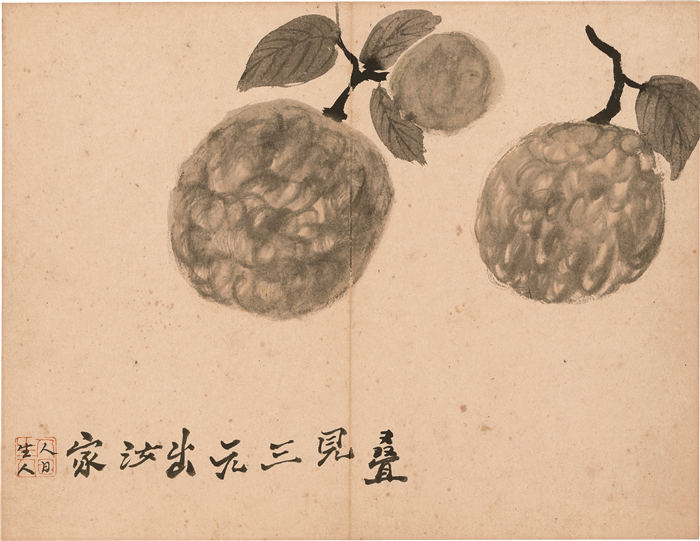 叠見三元出汝家
人日生人